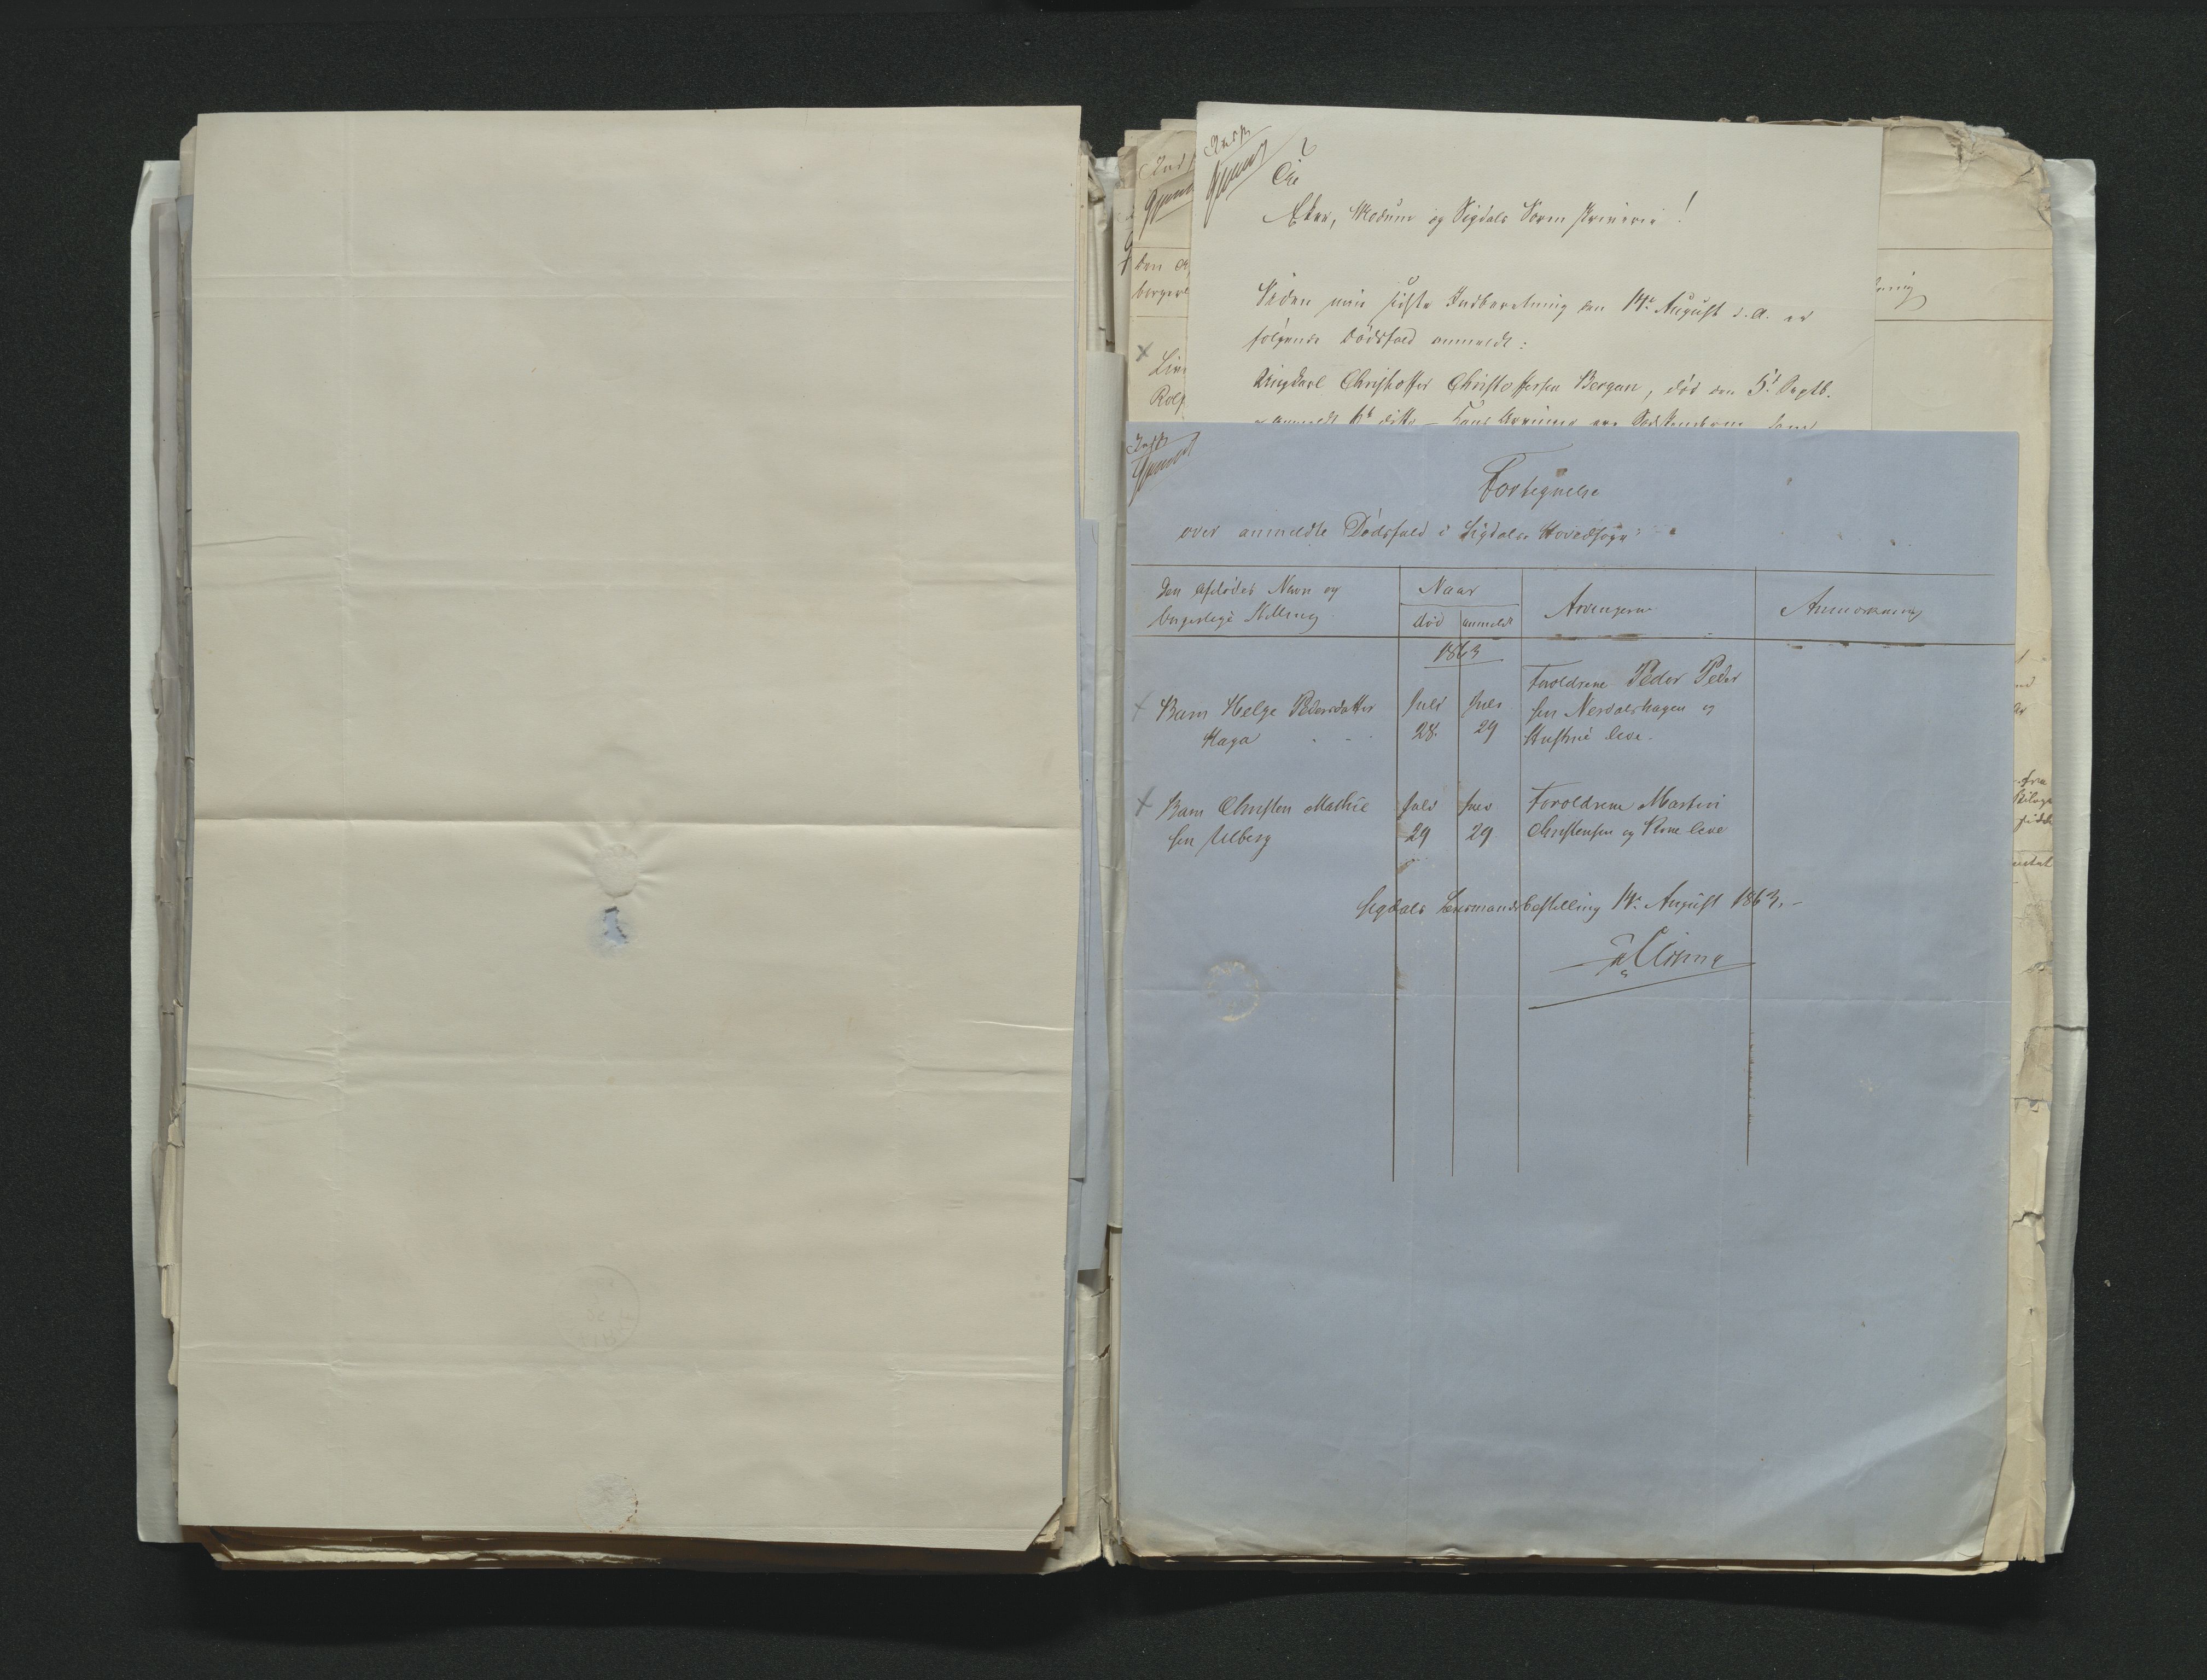 Til
Eker, Modum og Sigdals Sorenskriveri!
Siden min sidste Indberetning den 14de August d. A. er
følgende Dødsfald anmeldt:
Ungkarl Christoffer Christoffersen Bergan, død den 5te Septb.
anmeldt 6te ditto - Hans Arvinger ere Sødskendbørn
Fortegnelse
over anmeldte Dødsfald i Sigdals Hovedsogn
Den Afdødes Navn og
borgerlige Stilling
Naar
død
anmeldt
Arvingerne
Anmærkning
1863
Barn Helge Pedersdatter
Haga
Juli
28.
Juli
29
Forældrene Peder Peder
sen Nerdalshagen og
Hustrue leve.
Barn Christen Mathie
sen Ulberg
Juli
29
Juli
29.
Forældrene Martin
Christensen og Kone leve
Sigdals Lensmandsbestilling 14de August 1863.-